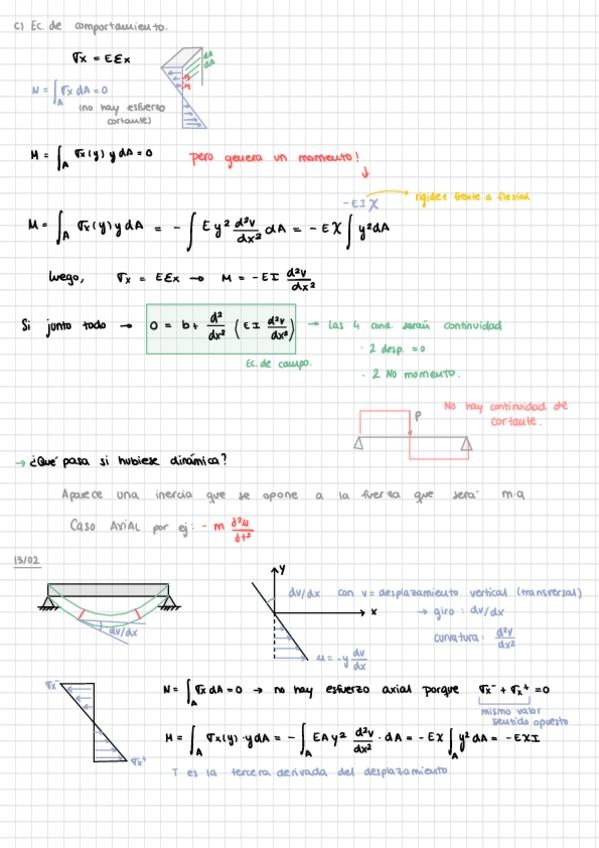 c) Ec. de comportamiento.
σx = Eεx
dA
dA
N = ∫A σx dA = 0
(no hay esfuerzo
cortante)
M = ∫A σx(y) y dA = 0 pero genera un momento!
-EIχ → rigidez frente a flexión
M = ∫A σx(y) y dA = - ∫ E y² d²v/dx² dA = -Eχ ∫ y² dA
Luego, σx = Eεx → M = -EI d²v/dx²
Si junto todo → 0 = b + d²/dx² (EI d²v/dx²) → Las 4 cond. serán continuidad
Ec. de campo.
· 2 desp. = 0
· 2 No momento.
No hay continuidad de
cortante.
P
→ ¿Qué pasa si hubiese dinámica?
Aparece una inercia que se opone a la fuerza que será m·a
Caso AXIAL por ej: - m d²u/dt²
13/02
dv/dx
y
x
dv/dx con v = desplazamiento vertical (transversal)
→ giro : dv/dx
curvatura: d²v/dx²
u = -y dv/dx
σx⁻
σx⁺
N = ∫A σx dA = 0 → no hay esfuerzo axial porque σx⁻ + σx⁺ = 0
mismo valor
sentido opuesto
M = ∫A σx(y) · y dA = - ∫A EA y² d²v/dx² · dA = -Eχ ∫A y² dA = -EχI
T es la tercera derivada del desplazamiento